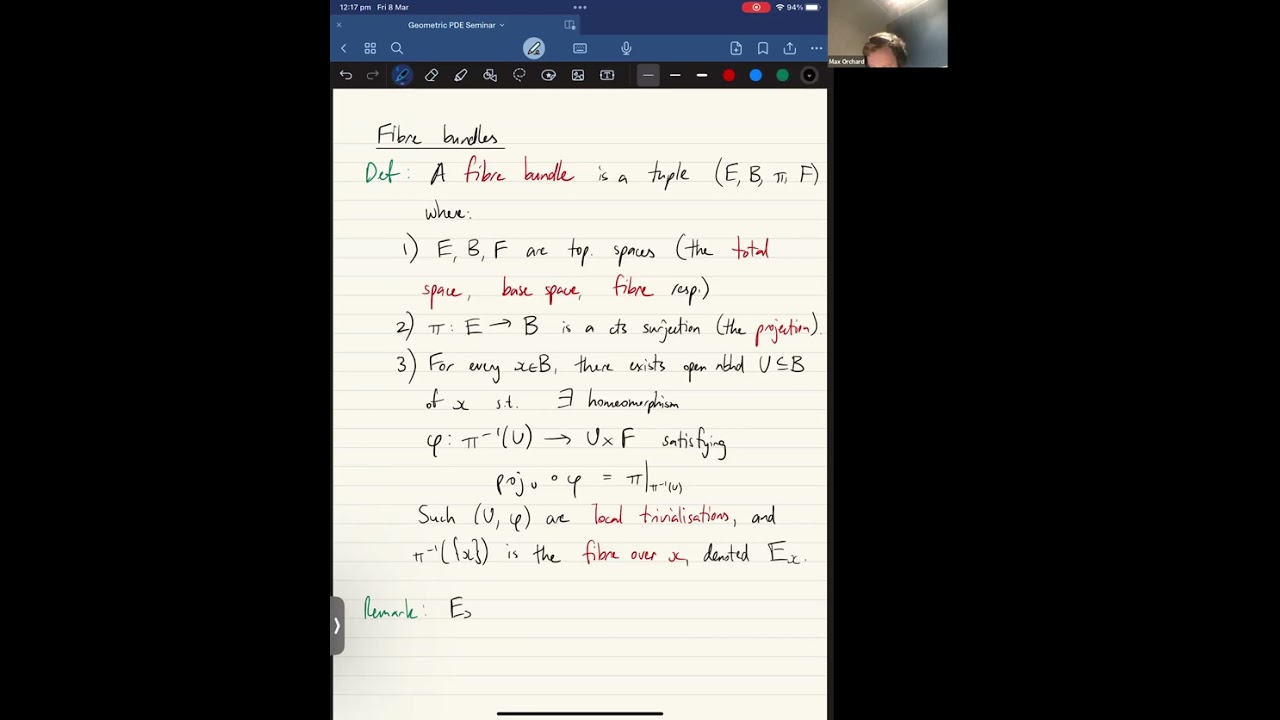 12:17 pm Fri 8 Mar
94%
Geometric PDE Seminar
Max Orchard
Fibre bundles
Def: A fibre bundle is a tuple (E, B, π, F)
where:
1) E, B, F are top. spaces (the total
space, base space, fibre resp.)
2) π: E → B is a cts surjection (the projection).
3) For every x∈B, there exists open nbhd U⊆B
of x s.t. ∃ homeomorphism
φ: π⁻¹(U) → U×F satisfying
proj_U ∘ φ = π|_π⁻¹(U)
Such (U, φ) are local trivialisations, and
π⁻¹({x}) is the fibre over x, denoted Eₓ.
Remark: E